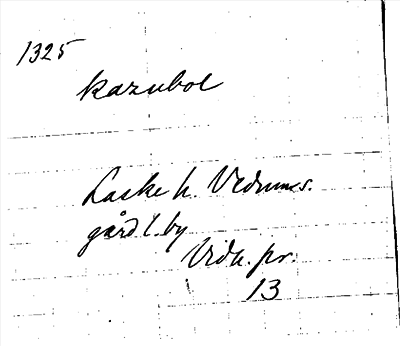 1325
karubol
Laske h. Vedrumes.
gård l. by
Vidh. pr.
13